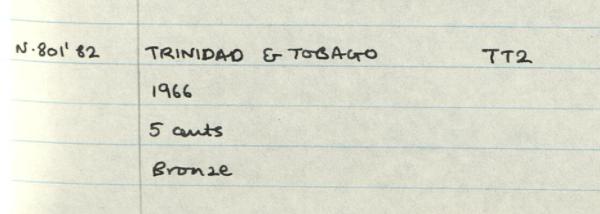 N.801'82 TRINIDAD & TOBAGO TT2
1966
5 cents
Bronze